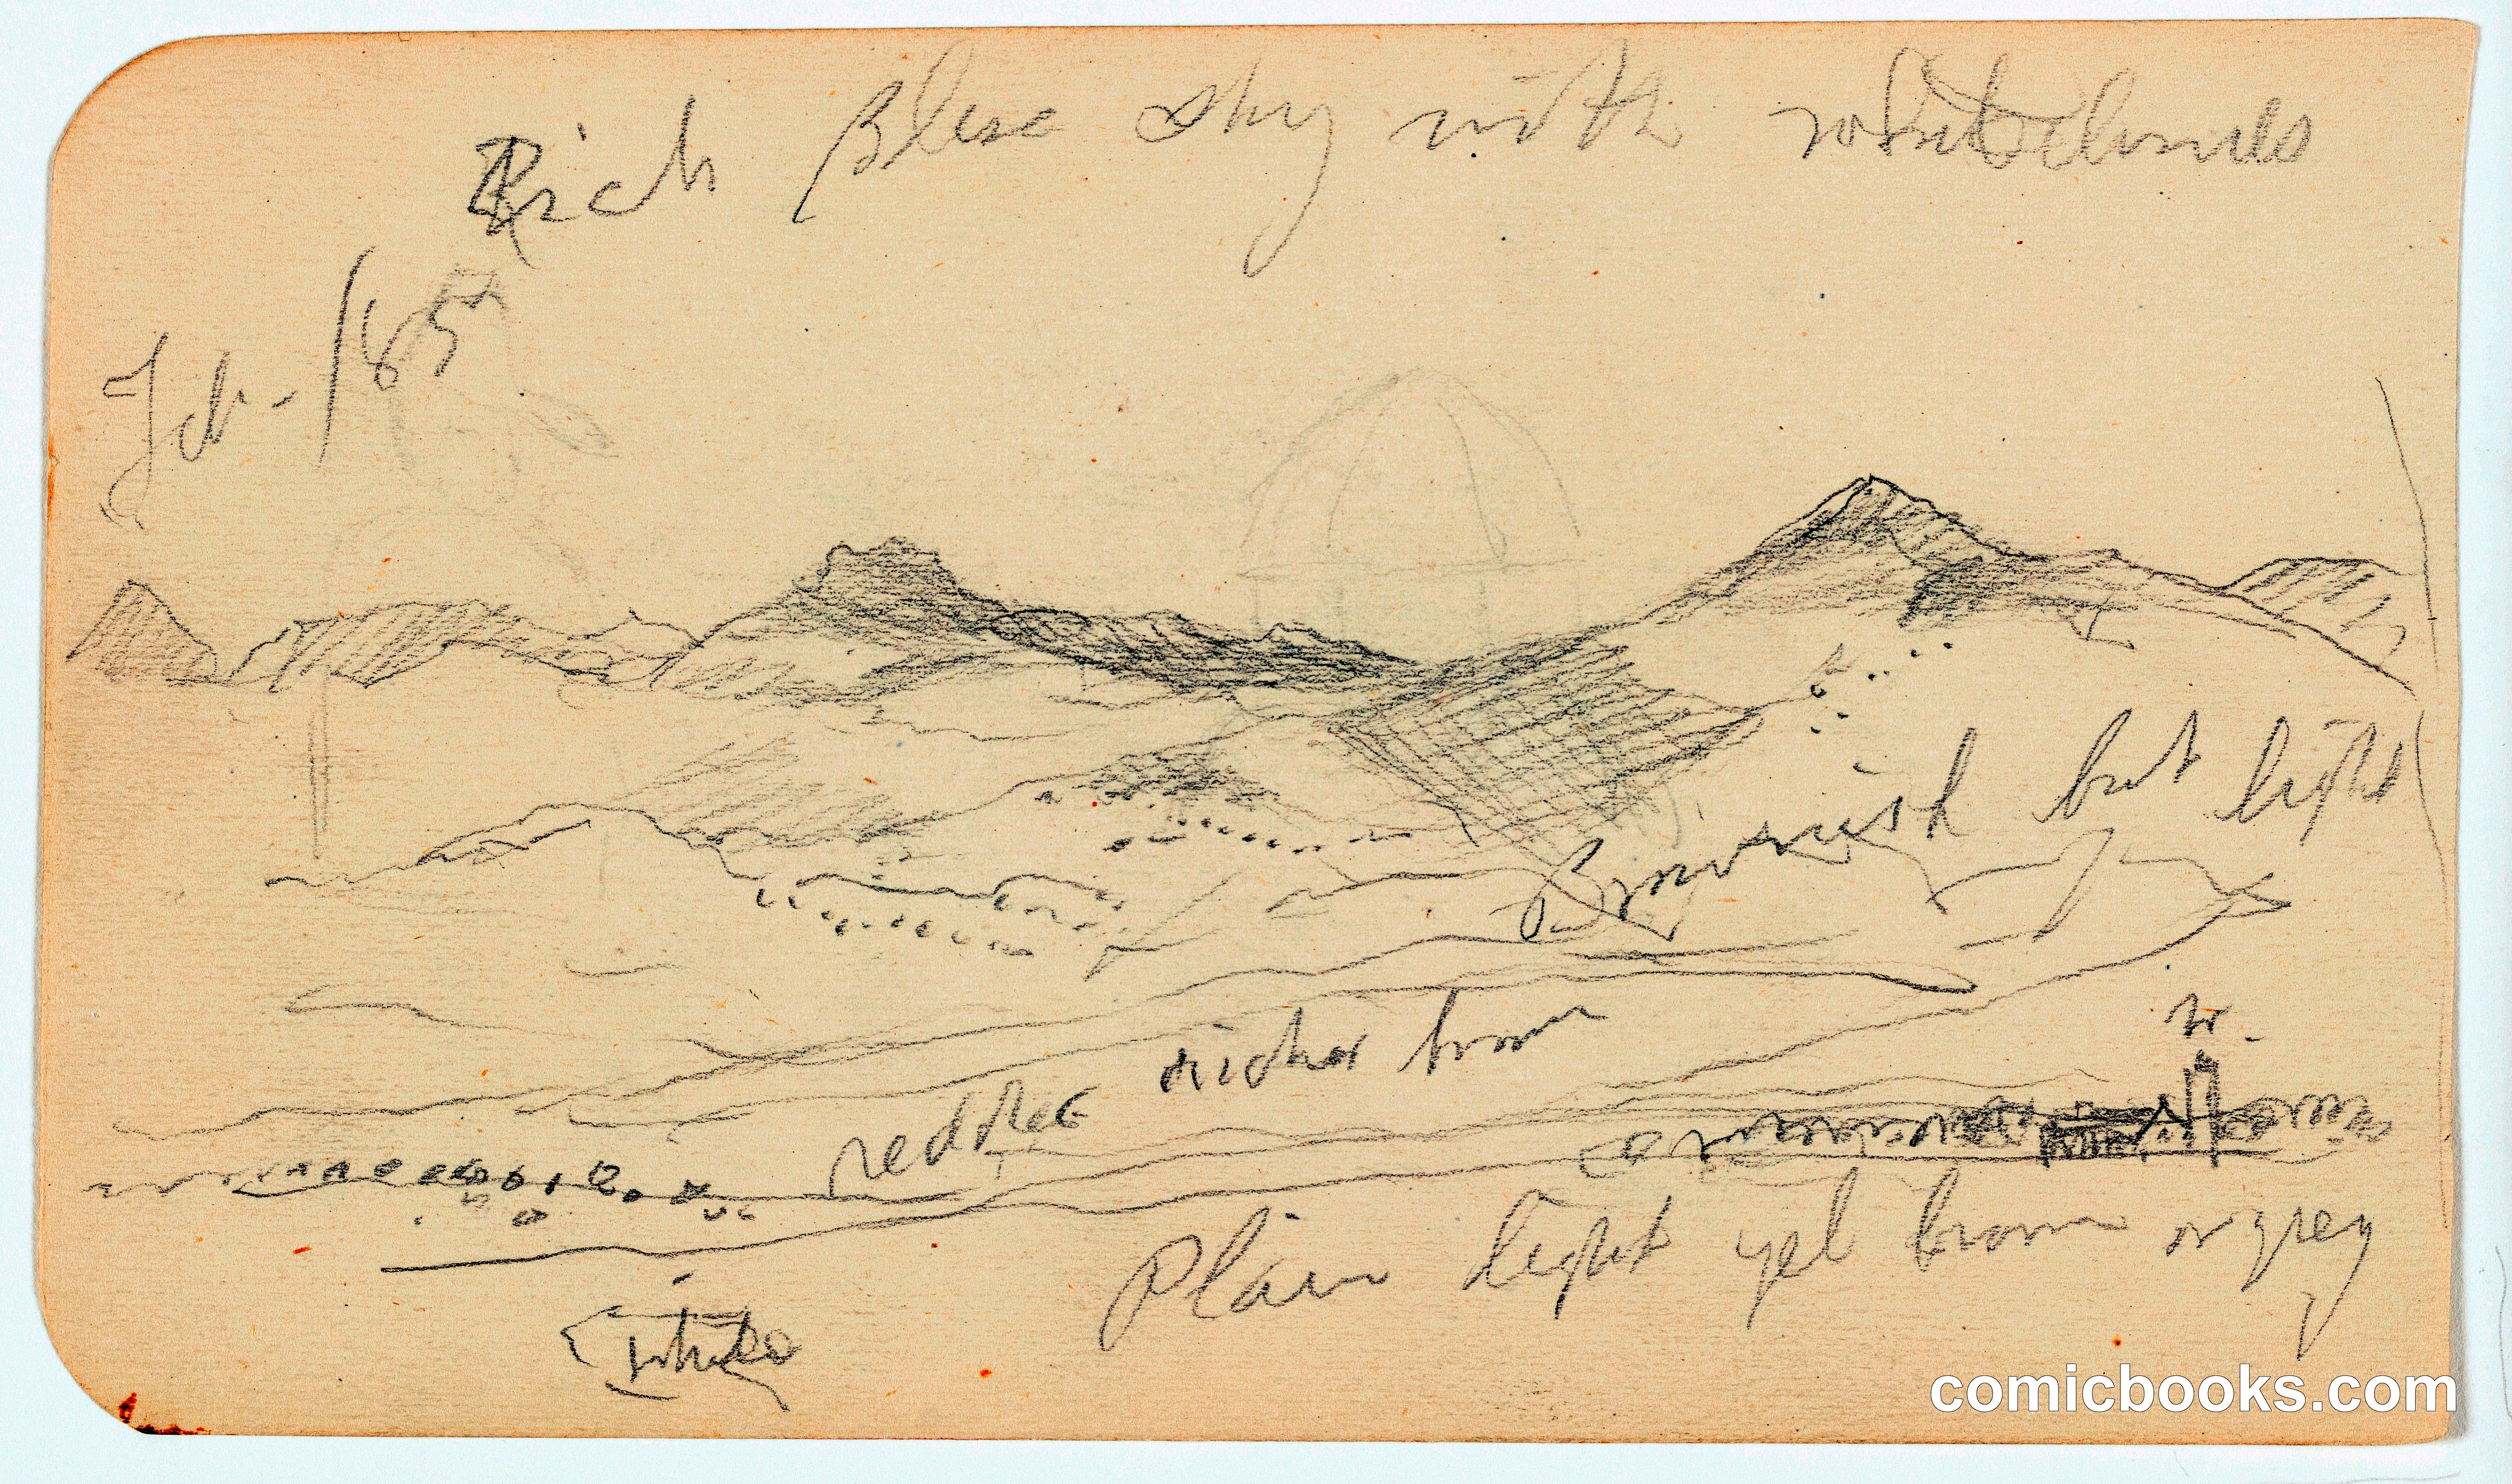 Rich Blue sky with white clouds
Feb - 1857
Brownish but light
richer brown
redder
Plain light yel brown or grey
white
comicbooks.com